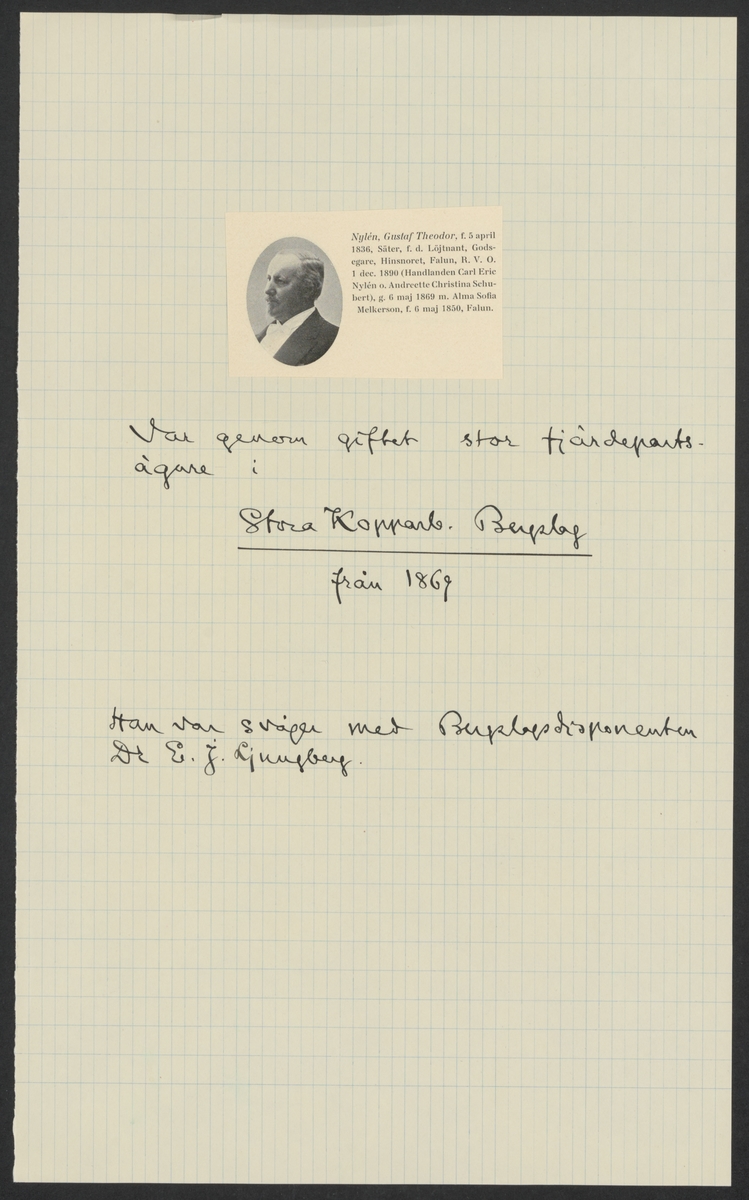 Nylén, Gustaf Theodor, f. 5 april
1836, Säter, f. d. Löjtnant, Gods-
egare, Hinsnoret, Falun, R. V. O.
1 dec. 1890 (Handlanden Carl Eric
Nylén o. Andreette Christina Schu-
bert), g. 6 maj 1869 m. Alma Sofia
Melkerson, f. 6 maj 1850, Falun.
Var genom giftet stor fjärdeparts-
ägare i
Stora Kopparb. Bergslag
från 1869
Han var svåger med Bergslagsdisponenten
Dr E. J. Ljungberg.